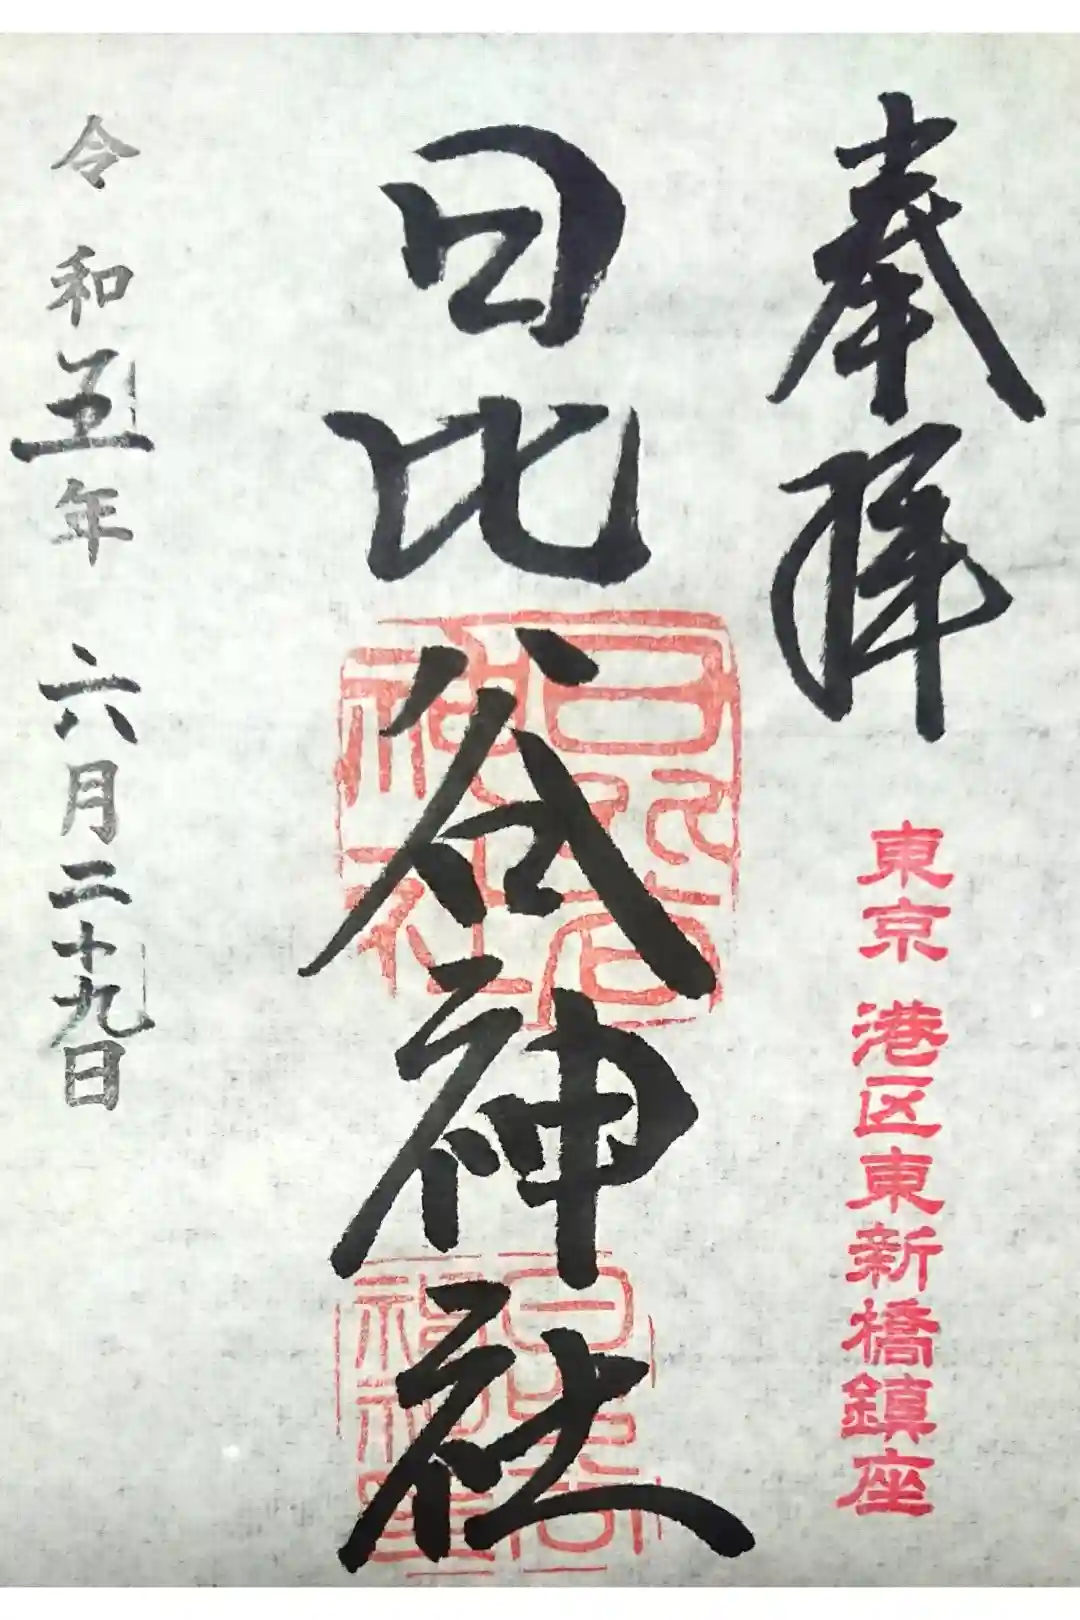 奉拜
東京 港区東新橋鎮座
日比谷神社
日比谷神社
令和五年 六月二十九日